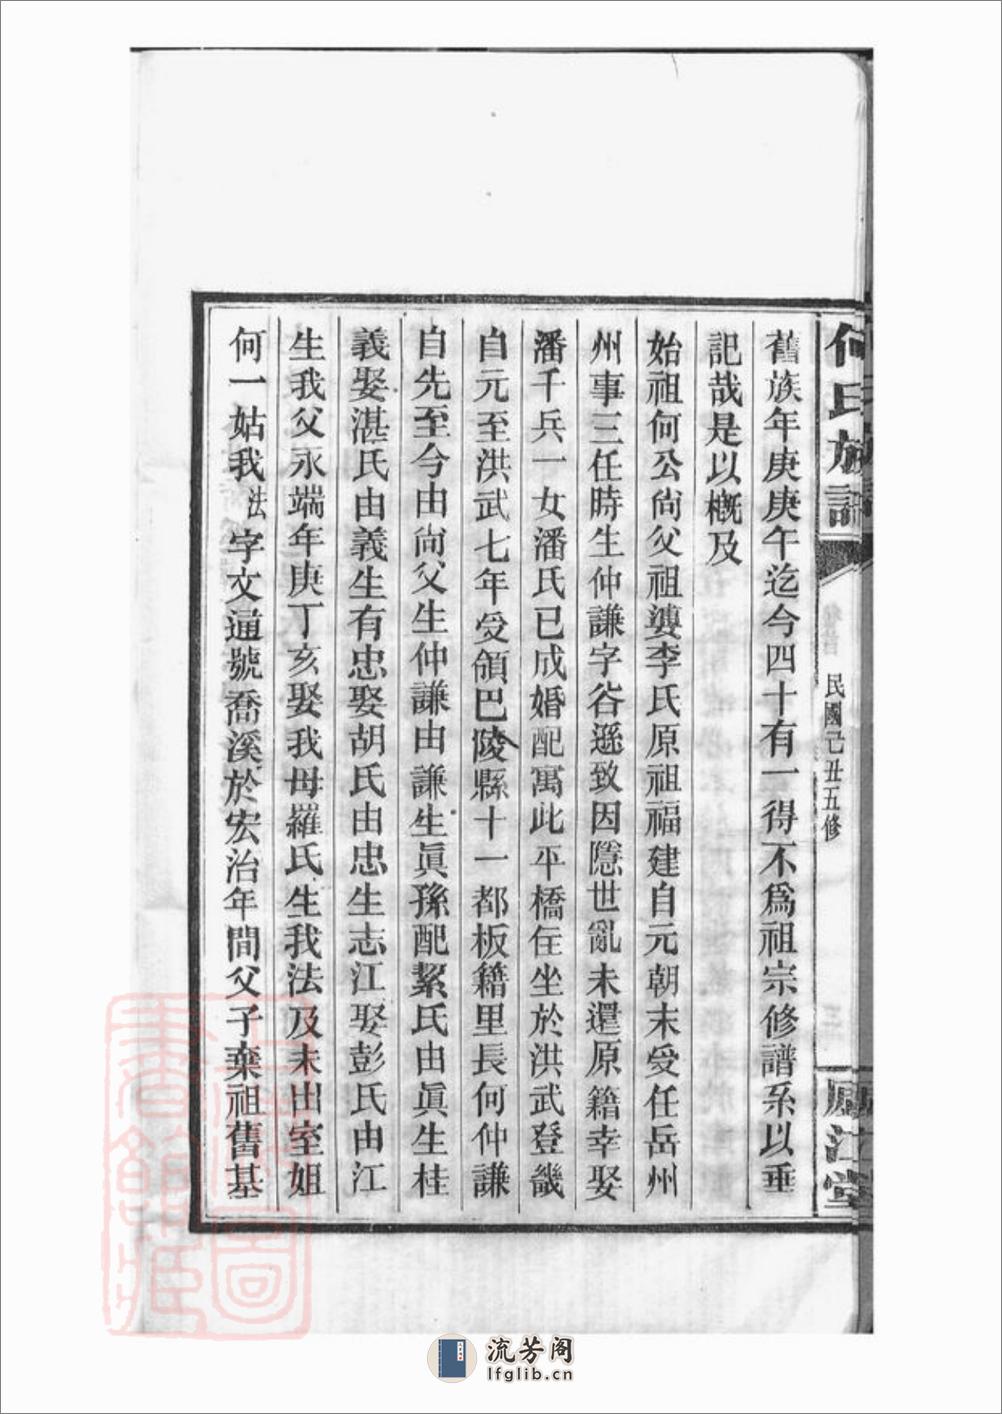 何氏族譜
民國己丑五修
廬江堂
舊族年庚庚午迄今四十有一得不爲祖宗修譜系以垂
記哉是以概及
始祖何公尙父祖婆李氏原祖福建自元朝末受任岳州
州事三任時生仲謙字谷遜致因隱世亂未還原籍幸娶
潘千兵一女潘氏已成婚配寓此平橋住坐於洪武登畿
自元至洪武七年受領巴陵縣十一都板籍里長何仲謙
自先至今由尙父生仲謙由謙生眞孫配絜氏由眞生桂
義娶湛氏由義生有忠娶胡氏由忠生志江娶彭氏由江
生我父永端年庚丁亥娶我母羅氏生我法及未出室姐
何一姑我法字文通號喬溪於宏治年間父子棄祖舊基
流芳阁
lfglib.cn